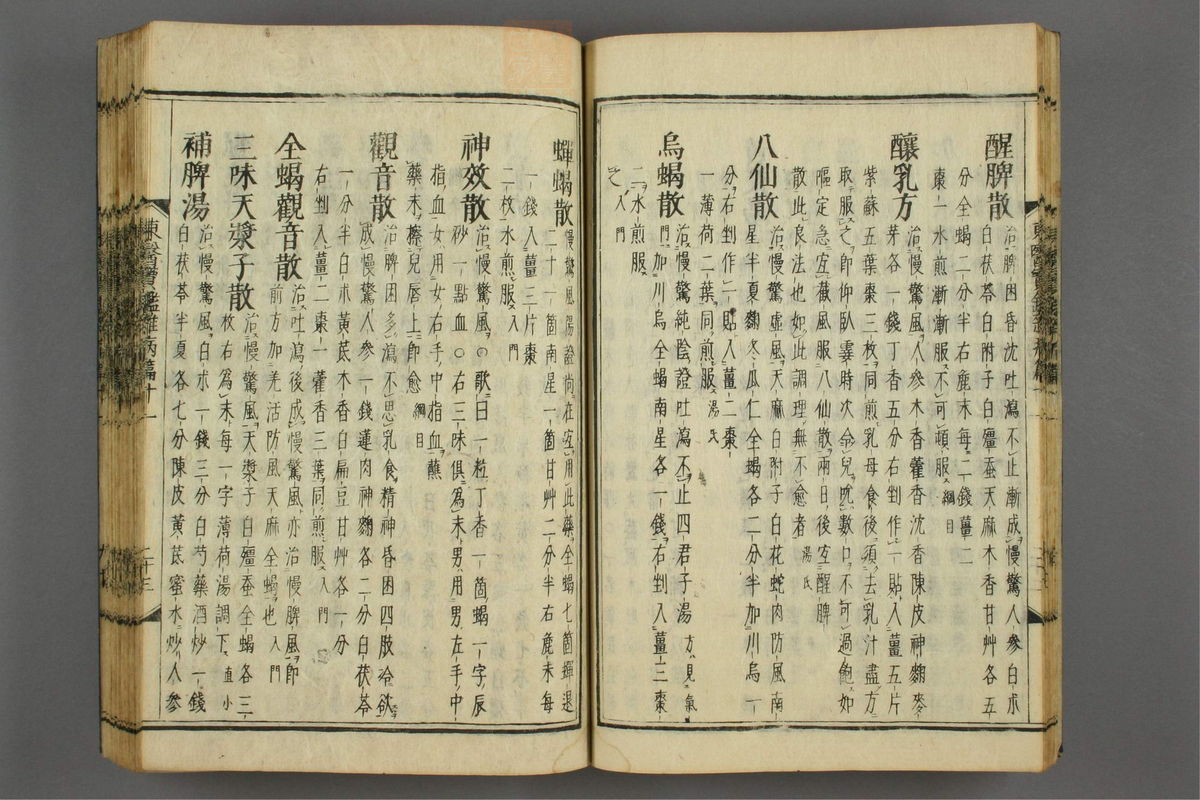 醒脾散 治脾困昏沈吐瀉不止漸成慢驚人參白朮
白茯苓白附子白殭蚕天麻木香甘艸各五
分全蝎二分半右麄末每二錢薑二
棗一水煎漸漸服不可頓服 綱目
釀乳方 治慢驚風人參木香藿香沈香陳皮神麴麥
芽各一錢丁香五分右剉作一貼入薑五片
紫蘇五葉棗三枚同煎乳母食後須去乳汁盡方
取服之卽仰臥霎時次令兒吮數口不可過飽如
嘔定急宜截風服八仙散兩日後宜醒脾
散此良法也如此調理無不愈者 湯氏
八仙散 治慢驚虛風天麻白附子白花蛇肉防風南
星半夏麴冬瓜仁全蝎各二分半加川烏一
分右剉作一貼入薑二棗
一薄荷二葉同煎服 湯氏
烏蝎散 治慢驚純陰證吐瀉不止四君子湯 方見氣
門 加川烏全蝎南星各一錢右剉入薑三棗
二水煎服
之 入門
蟬蝎散 慢驚風陽證尚在宜用此藥全蝎七箇蟬退
二十一箇南星一箇甘艸二分半右麄末每
一錢入薑三片棗
二枚水煎服 入門
神效散 治慢驚風○歌曰一粒丁香一箇蝎一字辰
砂一點血○右三味俱爲末男用男左手中
指血女用女右手中指血蘸
藥末擦兒唇上卽愈 綱目
觀音散 治脾困多瀉不思乳食精神昏困四肢冷欲
成慢驚人參一錢蓮肉神麴各二分白茯苓
一分半白朮黃芪木香白扁豆甘艸各一分
右剉入薑二棗一藿香三葉同煎服 入門
全蝎觀音散 治吐瀉後成慢驚風亦治慢脾風卽
前方加羌活防風天麻全蝎也 入門
三味天漿子散 治慢驚風天漿子白殭蚕全蝎各三
枚右爲末每一字薄荷湯調下 直小
補脾湯 治慢驚風白朮一錢三分白芍藥酒炒一錢
白茯苓半夏各七分陳皮黃芪蜜水炒人參
東醫寶鑑雜病篇十一
二十三